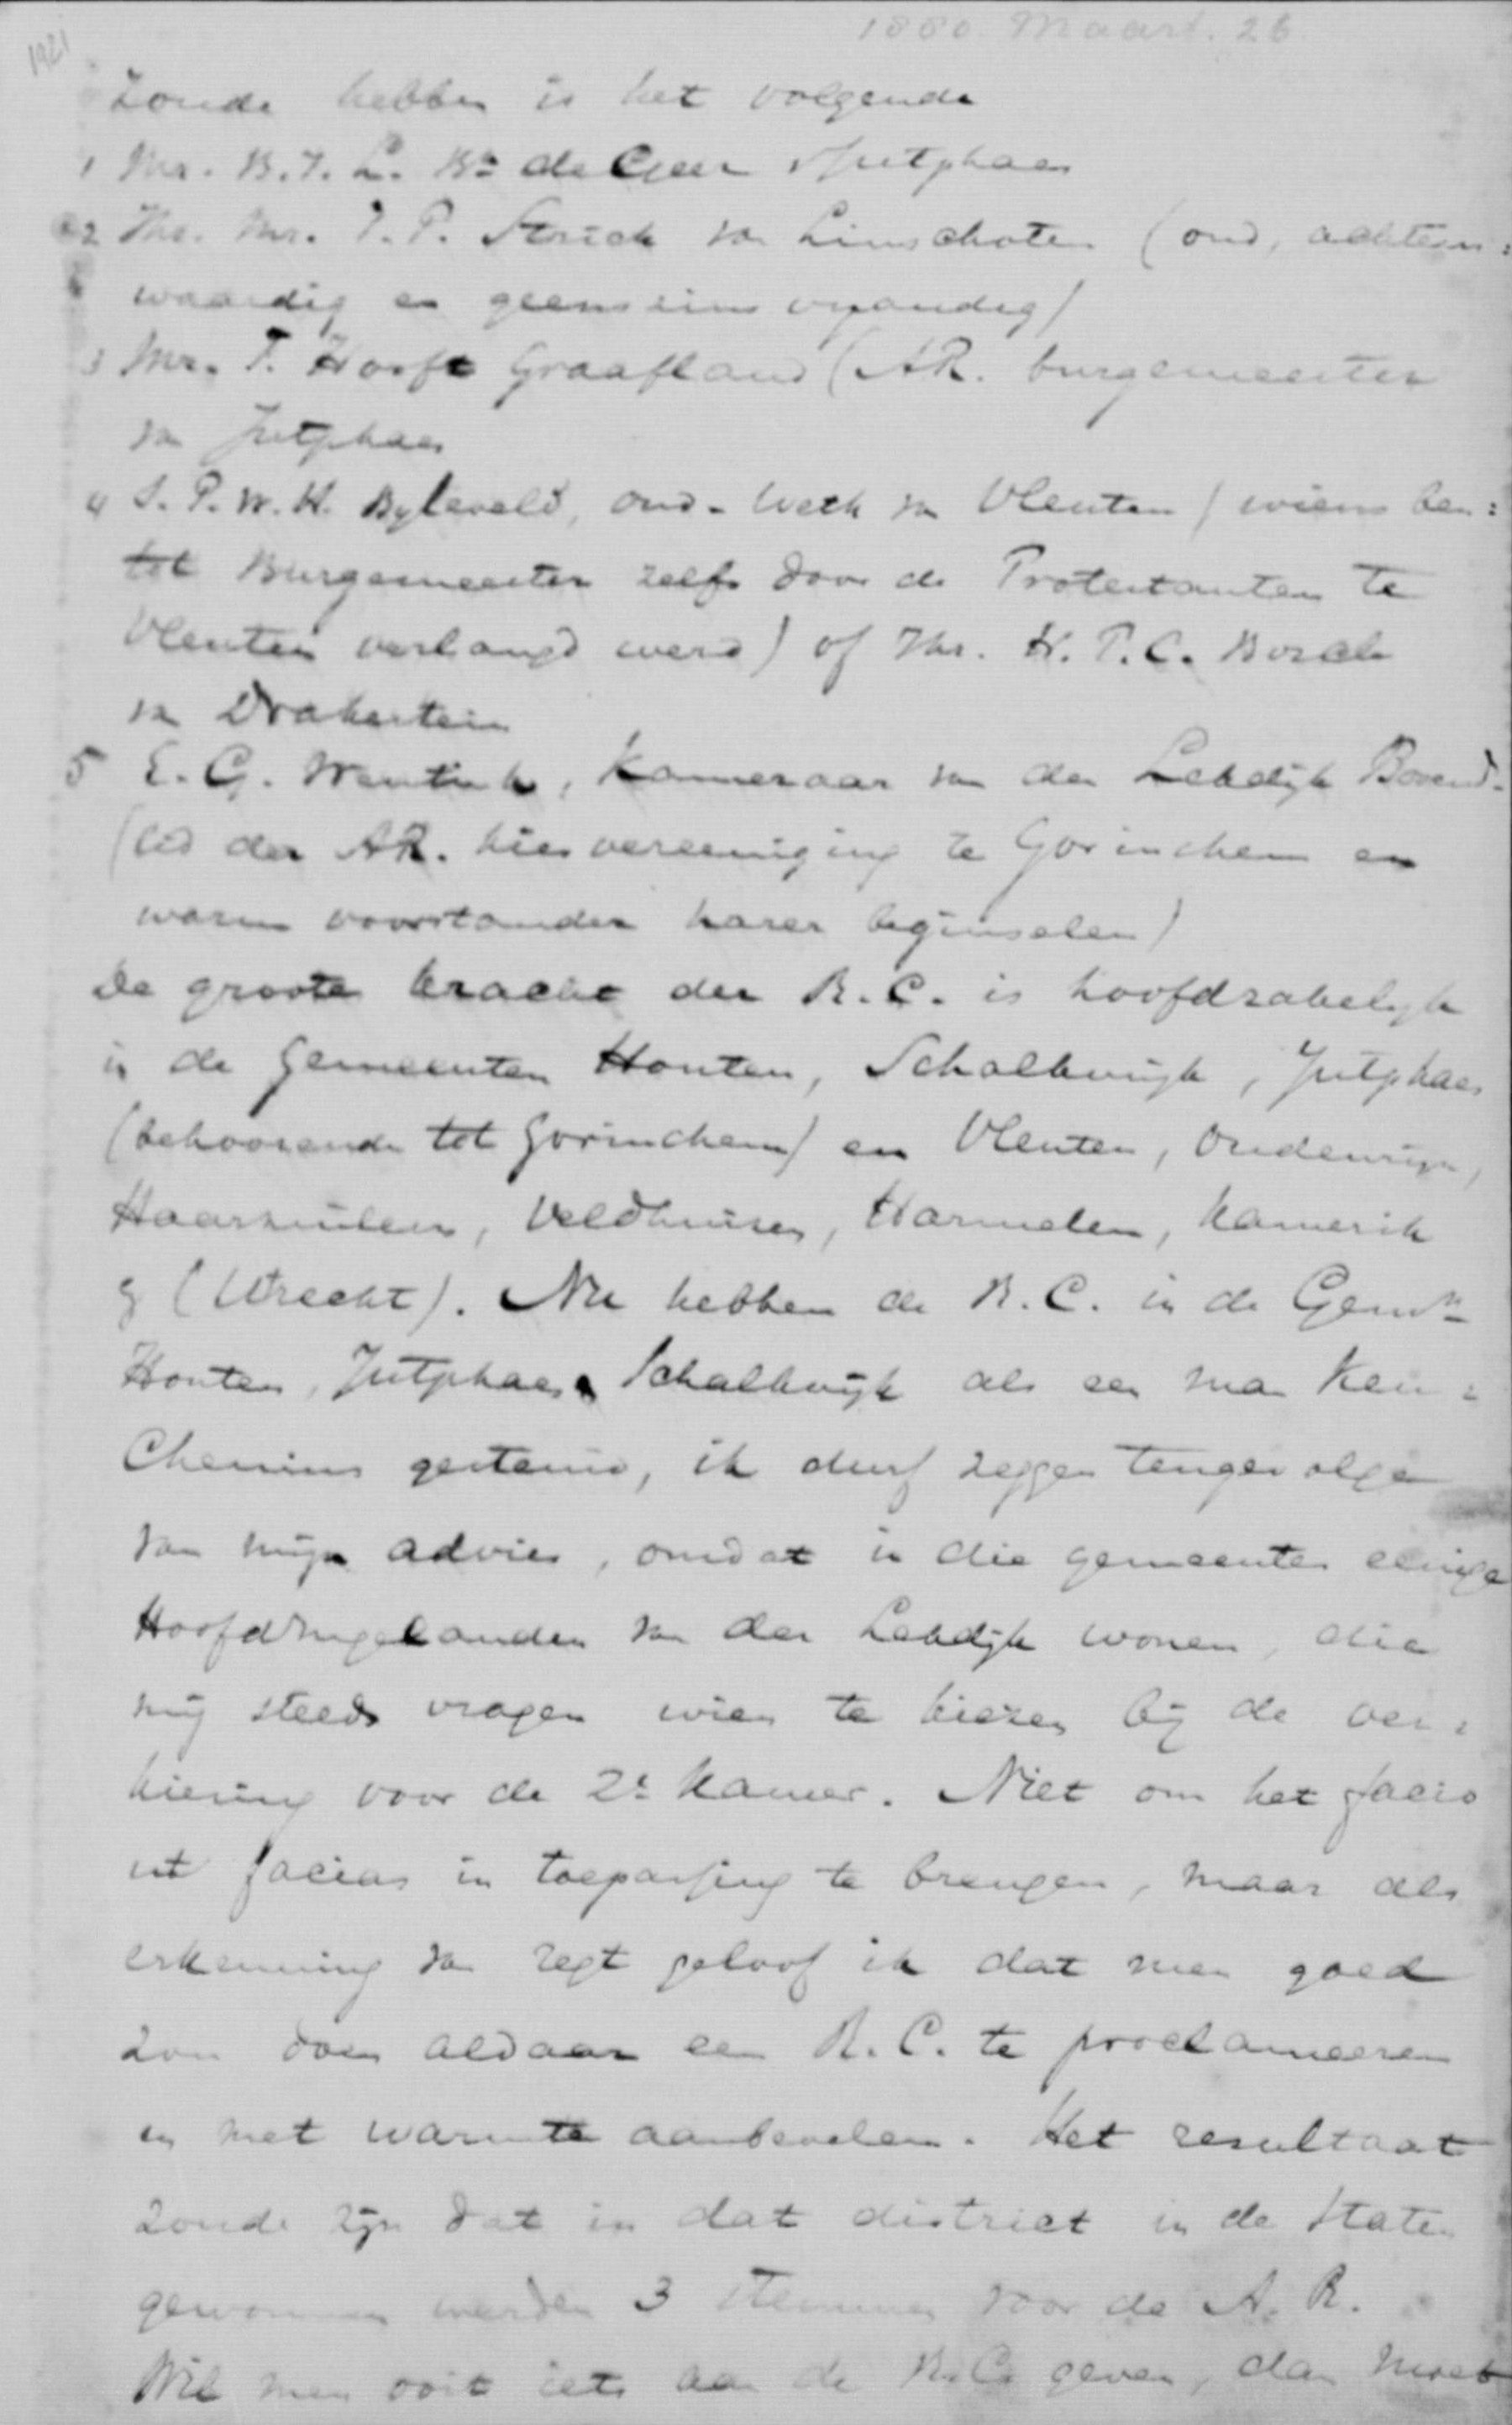 1880. Maart. 26.
1921
zoude hebben is het volgende
1 Mr. B.J.L. Bn de Geer Jutphaas
2 Jhr. Mr. J.P. Strick van Linschoten (oud, achtens=
waardig en geenszins vyandig)
3 Mr. J. Hooft Graafland (AR. burgemeester
van Jutphaas
4 S.P.W.H. Byleveld, oud-Weth van Vleuten (wiens ben=
tot Burgemeester zelfs door de Protestanten te
Vleuten verlangd werd) of Jhr. H.P.C. Bosch
van Drakestein
5 E.G. Wentink, Kameraar van den Lekdijk Bovend.
(lid der AR. kiesvereeniging te Gorinchem en
warm voorstander harer beginselen)
De groote kracht der R.C. is hoofdzakelyk
in de gemeenten Houten, Schalkwijk, Jutphaas
(behoorende tot Gorinchem) en Vleuten, Oudenrijn,
Haarzuilen, Veldhuizen, Harmelen, Kamerik
(Utrecht). Nu hebben de R.C. in de Gemn
Houten, Jutphaas & Schalkwijk als een man Keu=
Chenius gestemd, ik durf zeggen tengevolge
van mijn advies, omdat in die gemeenten eenige
Hoofdingelanden van den Lekdijk wonen, die
mij steeds vragen wien te kiezen bij de ver=
kiezing voor de 2e Kamer. Niet om het facio
ut facias in toepassing te brengen, maar als
erkenning van regt geloof ik dat men goed
zou doen aldaar een R.C. te proclameeren
en met warmte aanbevelen. Het resultaat
zoude zijn dat in dat district in de Staten
gewonnen werden 3 stemmen voor de A.R.
Wil men ooit iets aan de R.C. geven, dan moet